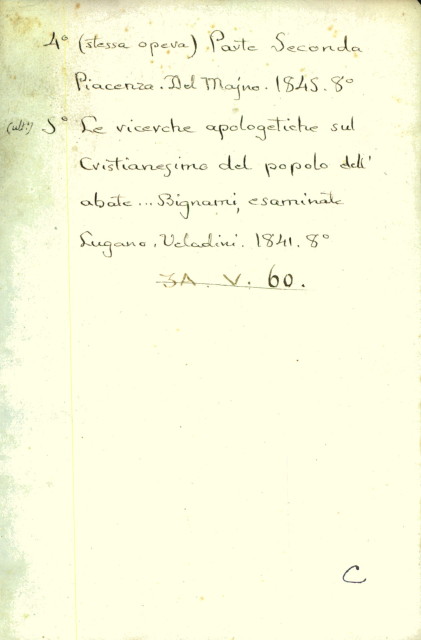 4° (stessa opera) Parte Seconda
Piacenza. Del Majno. 1845. 8°
(ult:°) 5° Le ricerche apologetiche sul
Cristianesimo del popolo dell'
abate... Bignami, esaminate
Lugano, Veladini. 1841. 8°
3A. V. 60.
C